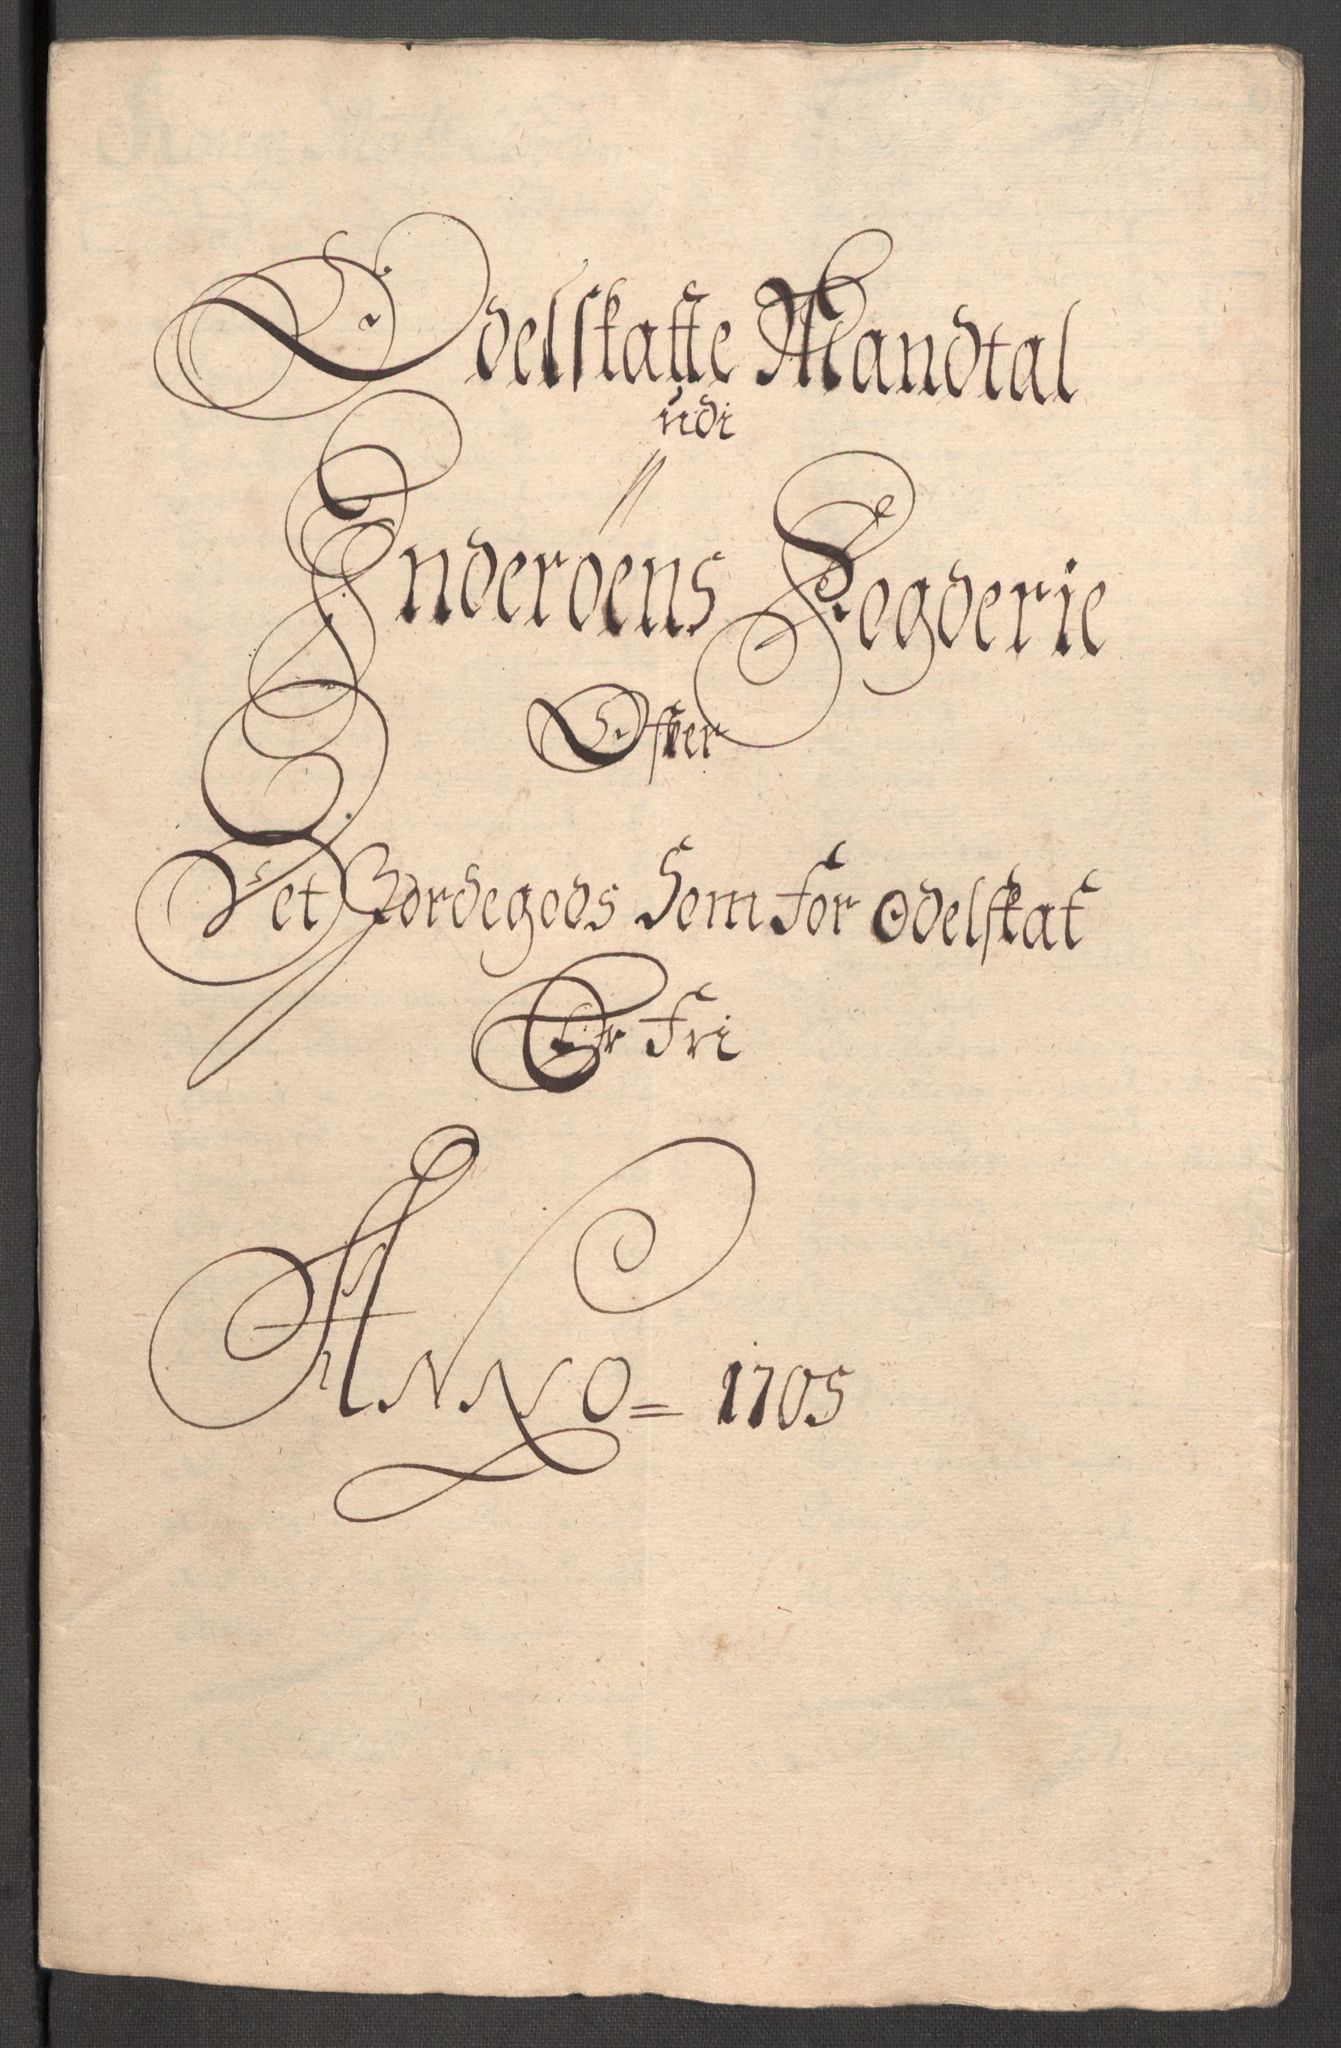 Odelskatte Mandtal
udi
Inderøens Fogderie
Ofver
Det Jordegods Som for Odelskat
Er Fri
ANNO = 1705